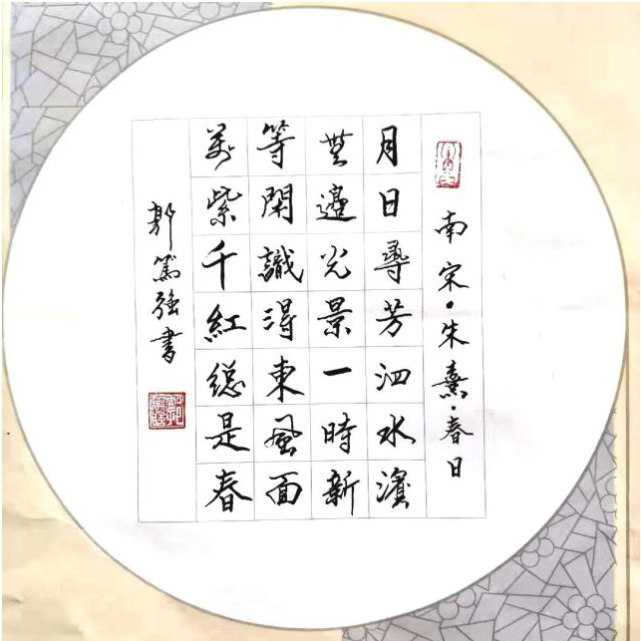 南宋·朱熹·春日
月日尋芳泗水濱
無邊光景一時新
等閑識得東風面
萬紫千紅總是春
郭篤强書